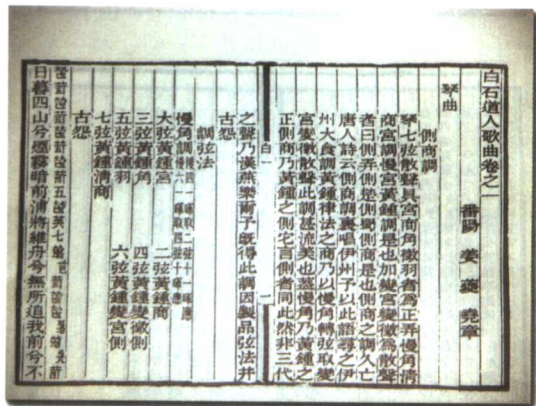 白石道人歌曲卷之一
番陽 姜夔 堯章
琴曲
側商調
琴七弦散聲具宮商角徵羽者爲正弄慢角清
商宮調慢宮黃鍾調是也加變宮變徵爲散聲
者曰側弄側楚側蜀側商是也側商之調久亡
唐人詩云側商調裏唱伊州予以此語尋之伊
州大食調黃鍾律法之商乃以慢角轉弦取變
宮變徵散聲此調甚流美也蓋慢角乃黃鍾之
正側商乃黃鍾之側它言側者同此然非三代
白一
二
之聲乃漢燕樂爾予既得此調因製品弦法并
古怨
調弦法
慢角調 慢四一暉取二弦十一暉應 慢六一暉取四弦十暉應
大弦黃鍾宮 二弦黃鍾商
三弦黃鍾角 四弦黃鍾變徵側
五弦黃鍾羽 六弦黃鍾變宮側
七弦黃鍾清商
古怨
日暮四山兮煙霧暗前浦將維舟兮無所追我前兮不